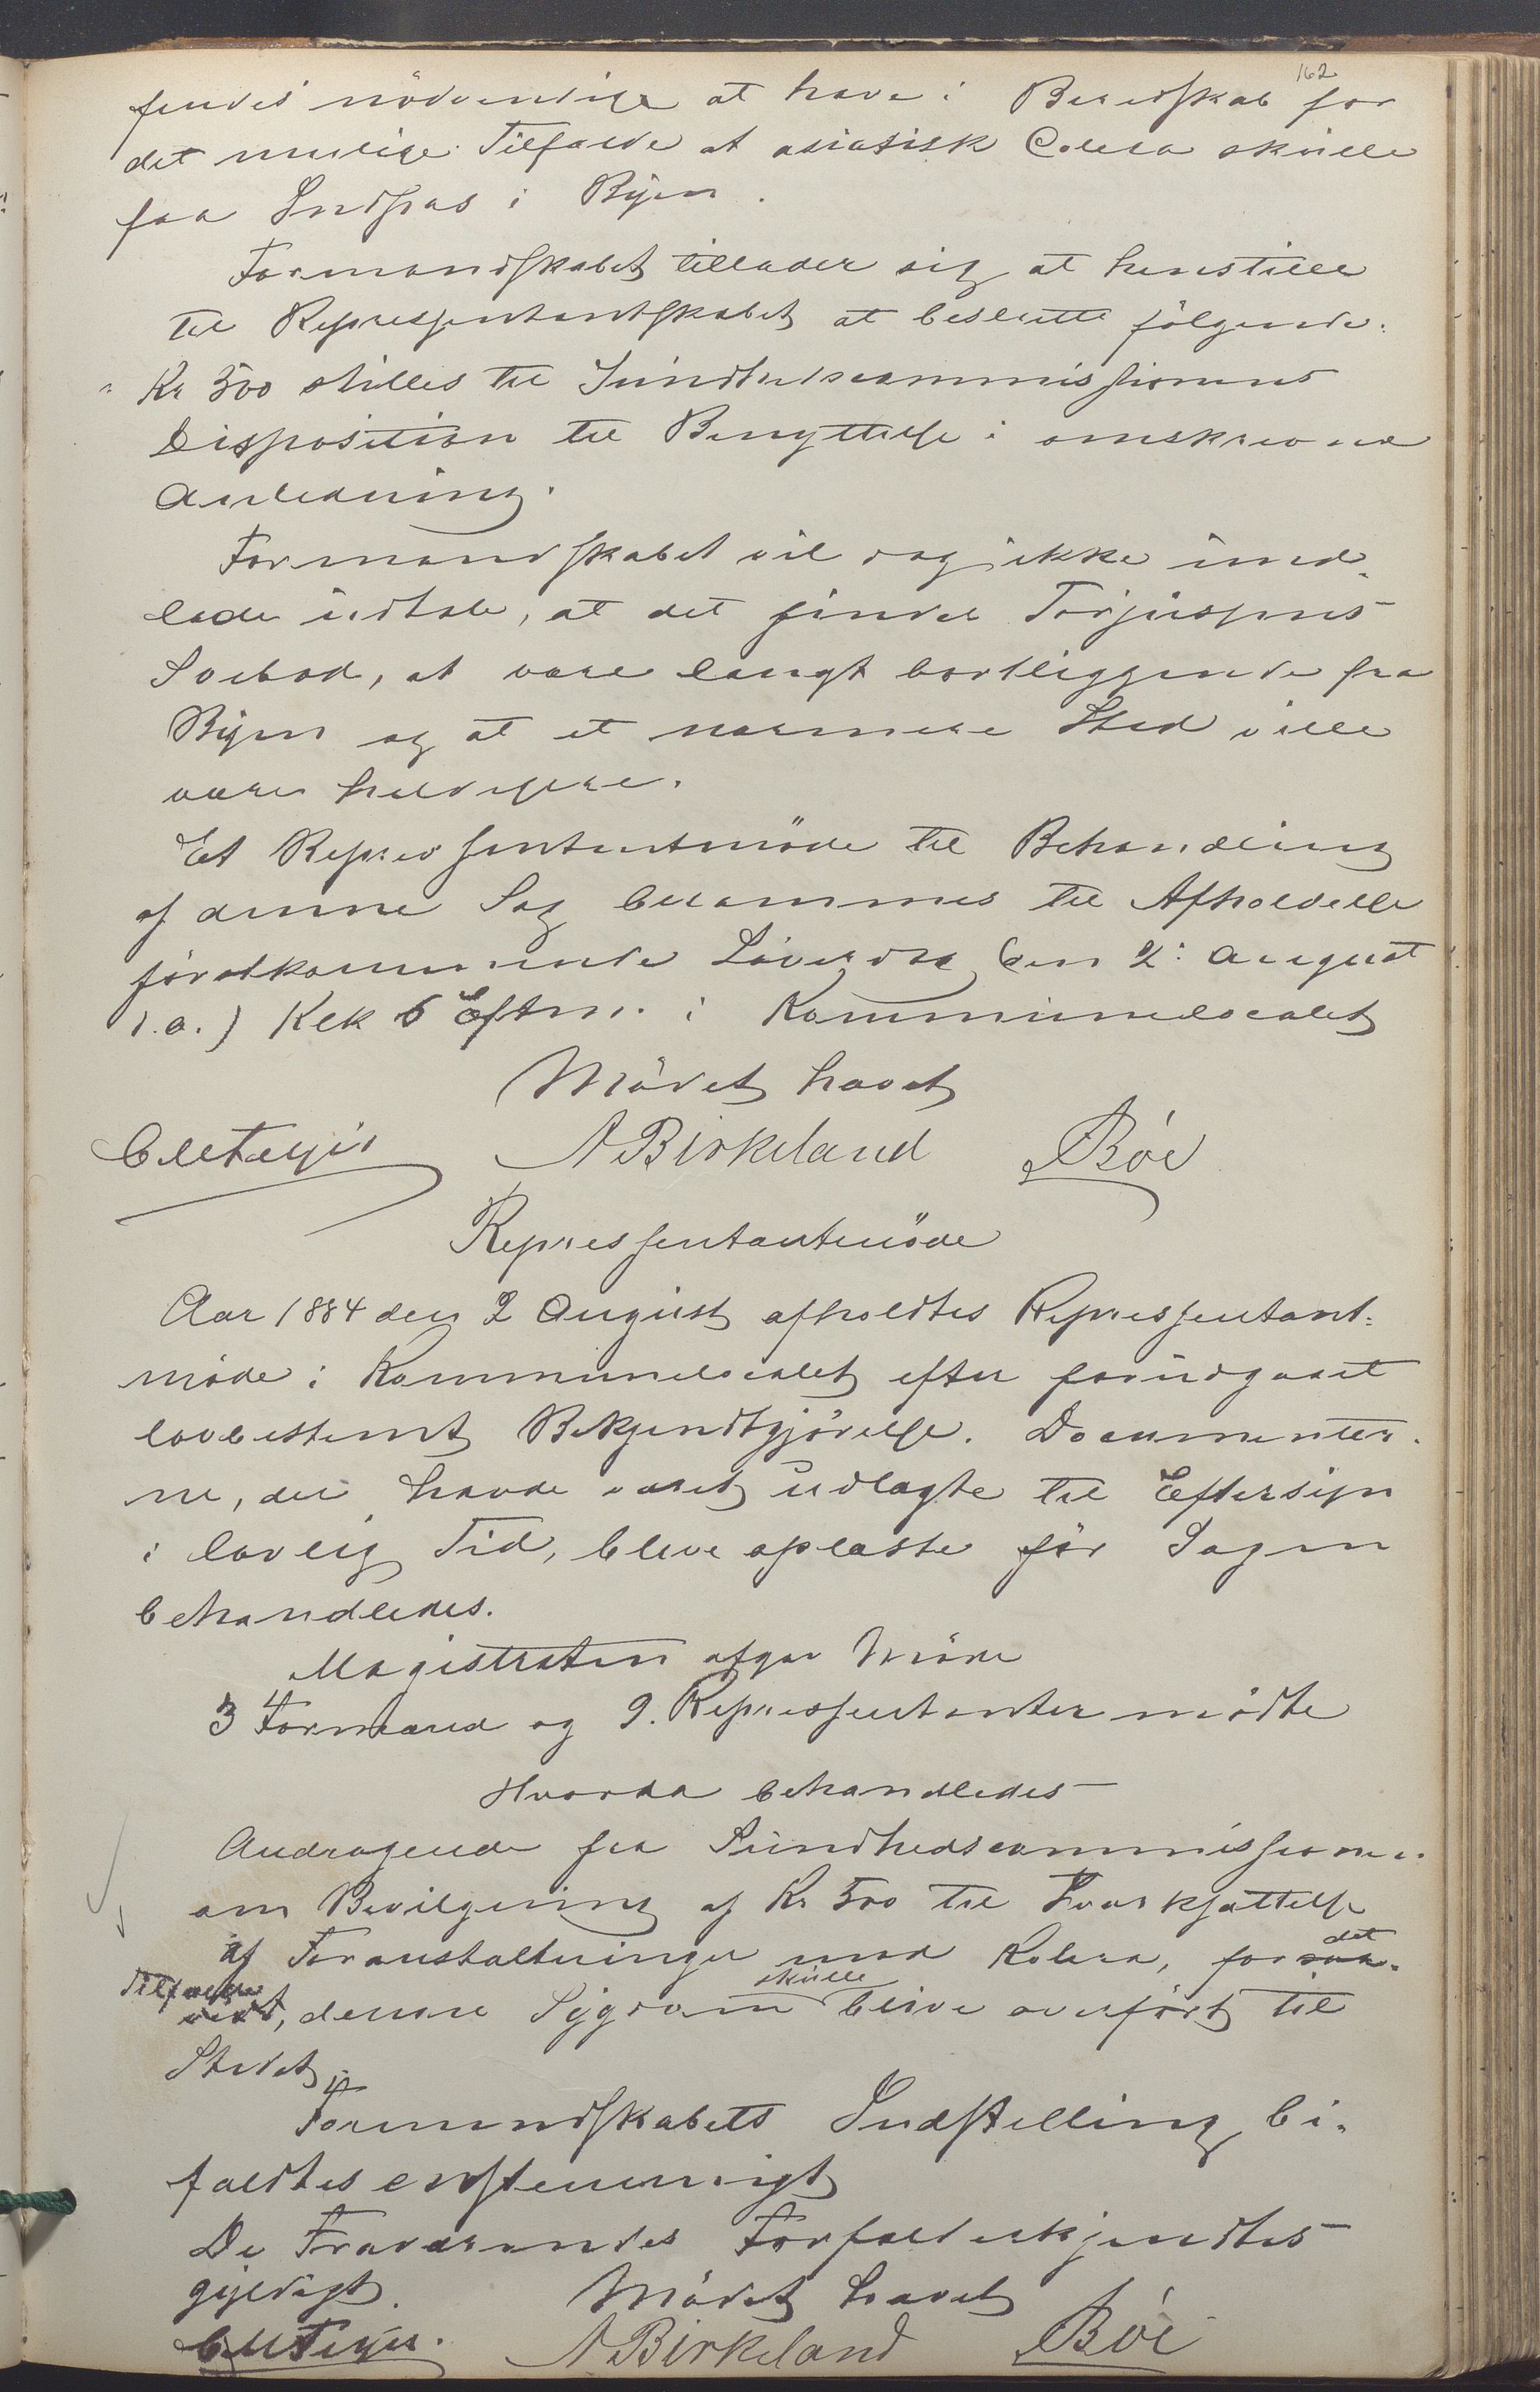 162
findes nödvendige at have i Beredskab for
det mulige Tilfælde at asiatisk Colera skulle
faa Indpas i Byen.
Formandskabet tillader sig at henstille
til Repressentantskabet at beslutte fölgende:
"Kr 500 stilles til Sundhedscommissionens
Disposition til Benyttelse i omskrevne
Anledning.
Formandskabet vil dog ikke und-
lade udtale, at det finder Torjussens
Søebod, at være langt bortliggende fra
Byen og at et nærmere Sted ville
være heldigere.
Et Repressentantmöde til Behandling
af denne Sag berammes til Afholdelse
förstkommende Löverdag (den 2: August
d.a.) Klk 6 Eftm. i Kommunelocalet
Mödet hævet
A Birkeland Böe
Repressentantmöde
Aar 1884 den 2 August afholdtes Repressentant-
möde i Kommunelocalet efter forudgaaet
lovbestemt Bekjendtgjörelse. Documenter-
ne, der havde været udlagte til Eftersyn
i lovlig Tid, bleve oplæste för Sagen
behandledes.
Magistraten afgav Möde
3 Formænd og 9. Repressentanter mödte
Hvorda behandledes
Andragende fra Sundhedscommissionen
om Bevilgning af Kr 500 til Iværksættelse
af Foranstaltninger mod Kolera, for det saa-
Tilfælde vidt, denne Sygdom skulle blive overfört til
Stedet.
Formandskabets Indstilling bi-
faldtes enstemmigt
De Fraværendes Forfald erkjendtes
gyldigt. Mödet hævet
A Birkeland Böe